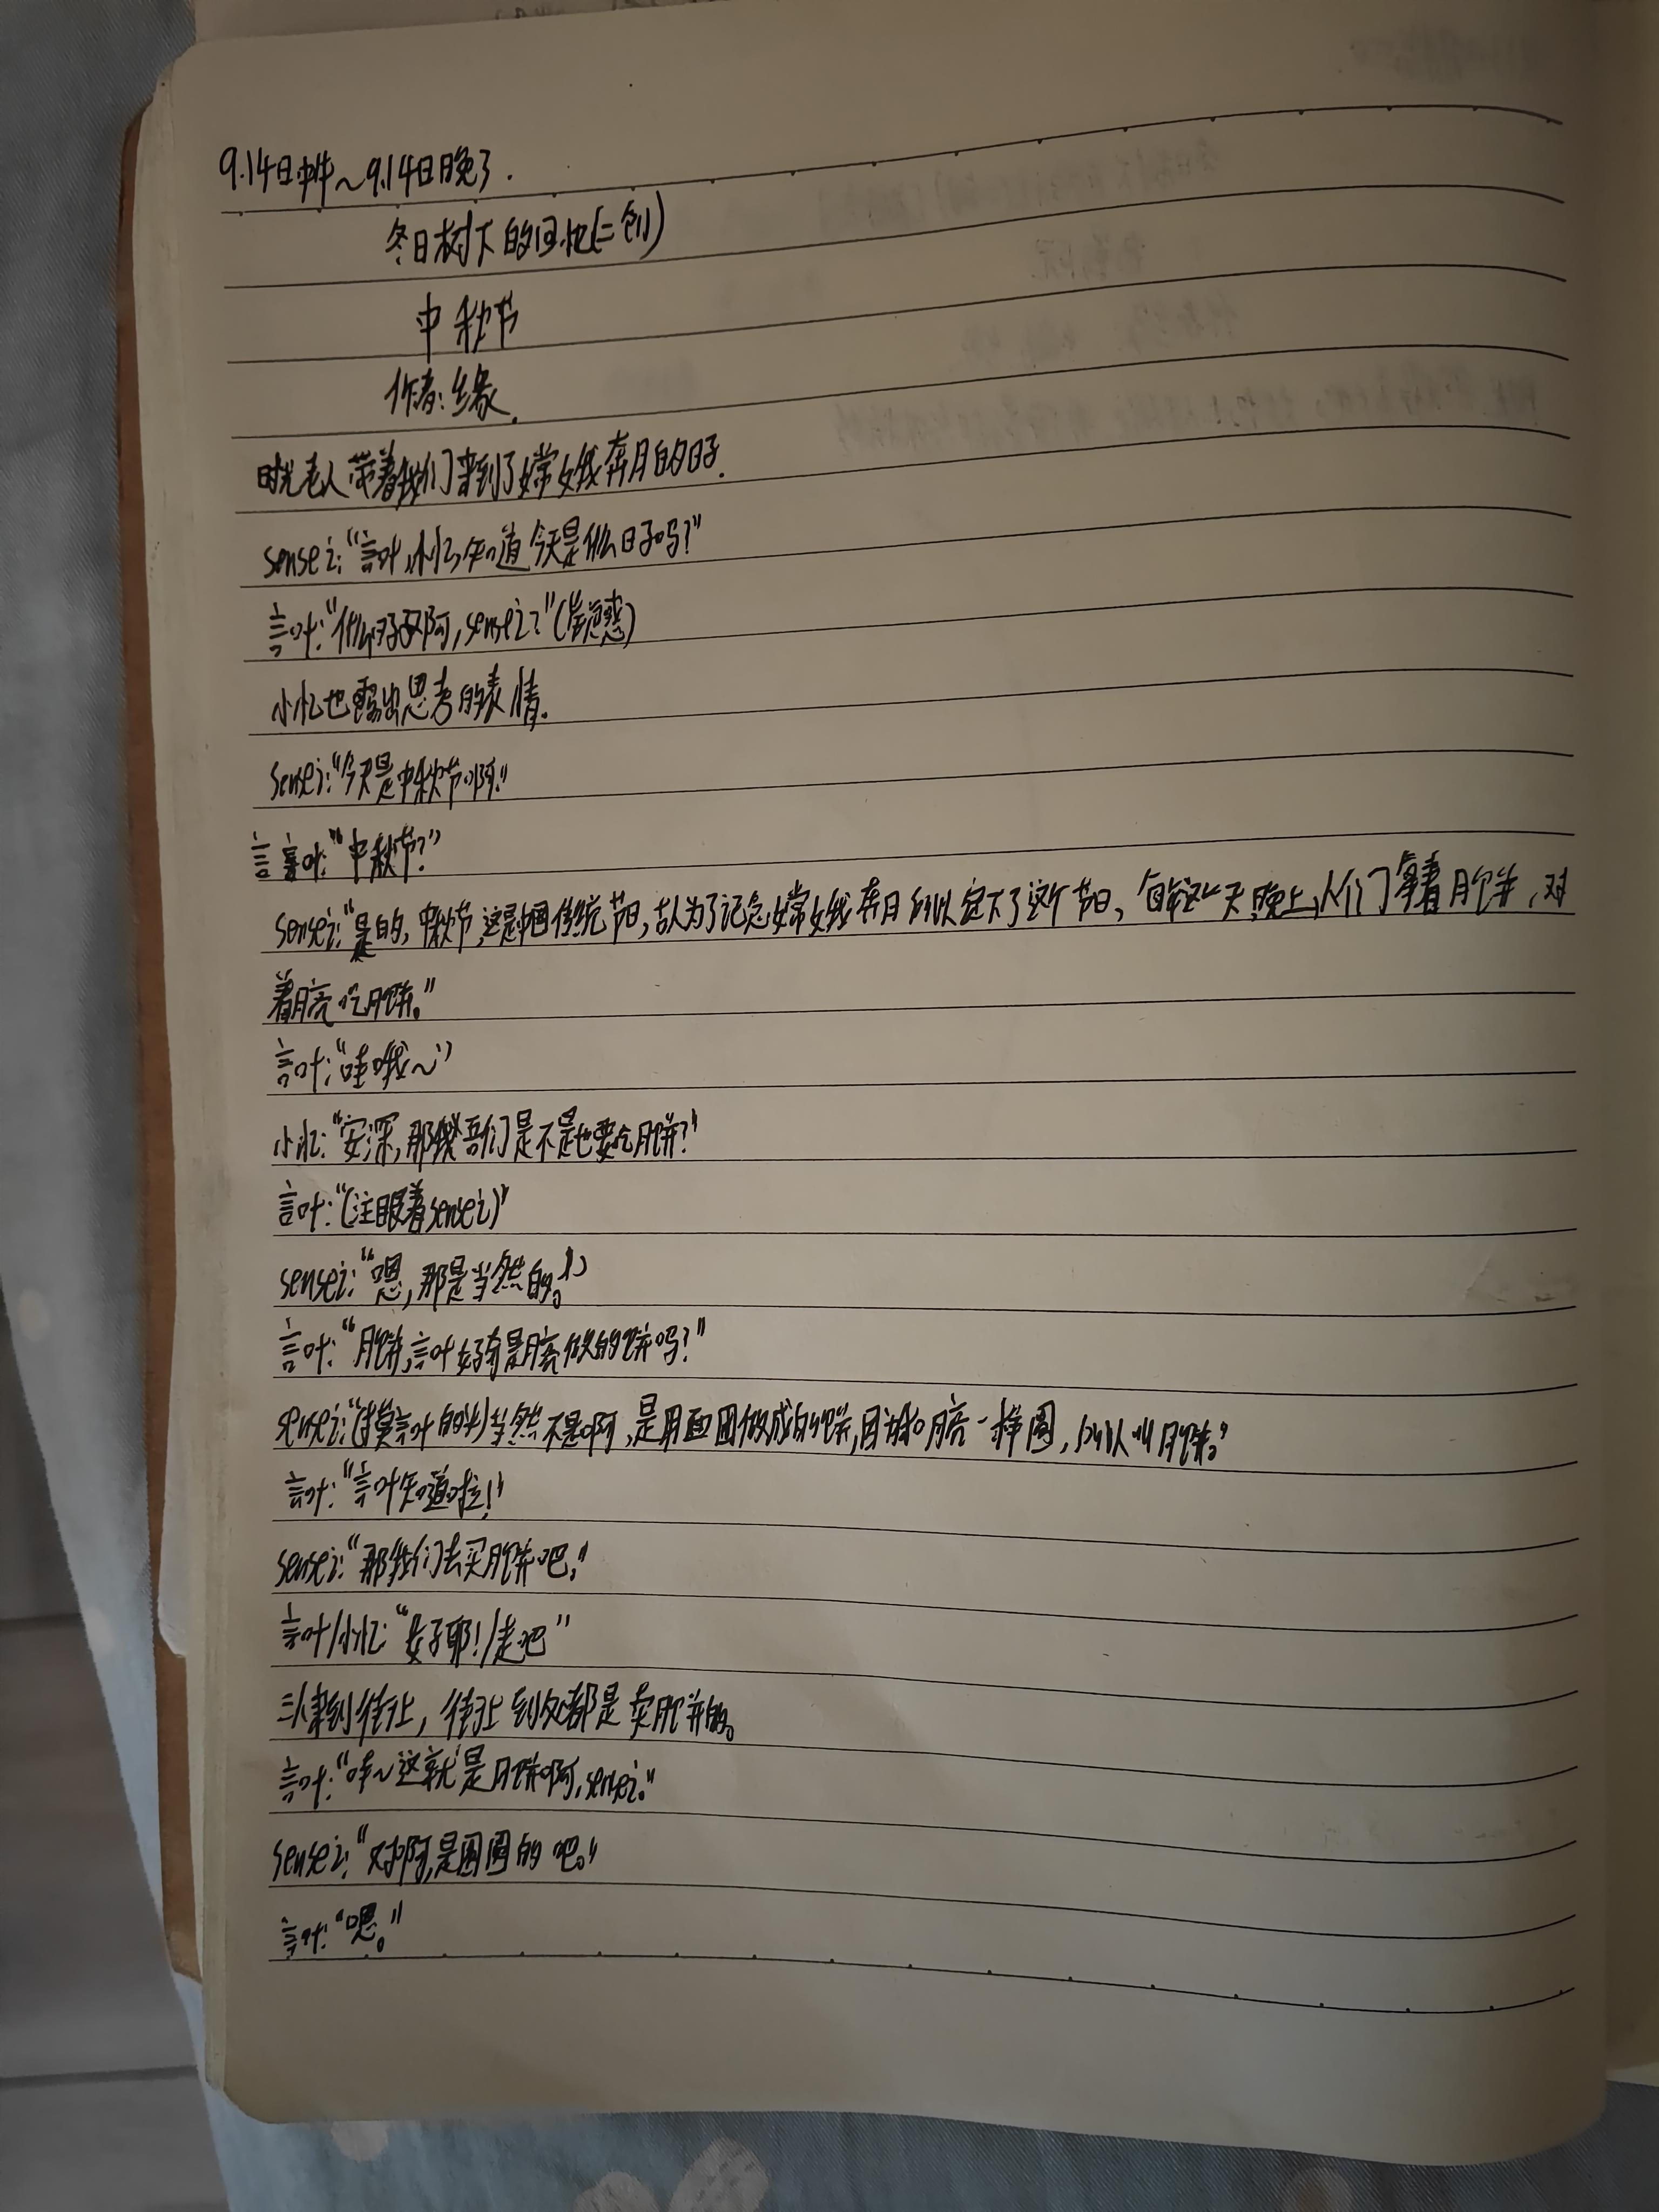 9.14日中午～9.14日晚了.
冬日树下的回忆(二创)
中秋节
作者:缘.
时光老人带着我们来到了嫦娥奔月的日子.
sensei:“言叶,小忆,知道今天是什么日子吗?”
言叶:“什么日子呀啊,sensei?”(疑惑)
小忆也露出思考的表情.
sensei:“今天是中秋节啊.”
言叶:“中秋节?”
sensei:“是的,中秋节,这是中国传统节日,古人为了记念嫦娥奔月所以定下了这个节日,每年这一天晚上,人们拿着月饼,对
着月亮吃月饼.”
言叶:“哇哦～”
小忆:“安深,那我们是不是也要吃月饼?”
言叶:“(注眼着sensei)”
sensei:“嗯,那是当然的。”
言叶:“月饼,言叶好奇是月亮做的饼吗?”
sensei:“(摸言叶的头)当然不是啊,是用面团做成的饼,因为和月亮一样圆,所以叫月饼。”
言叶:“言叶知道啦!”
sensei:“那我们去买月饼吧!”
言叶/小忆:“好耶!/走吧”
三人来到街上,街上到处都是卖月饼的。
言叶:“哇～这就是月饼啊,sensei.”
sensei:“对啊,是圆圆的吧。”
言叶:“嗯。”